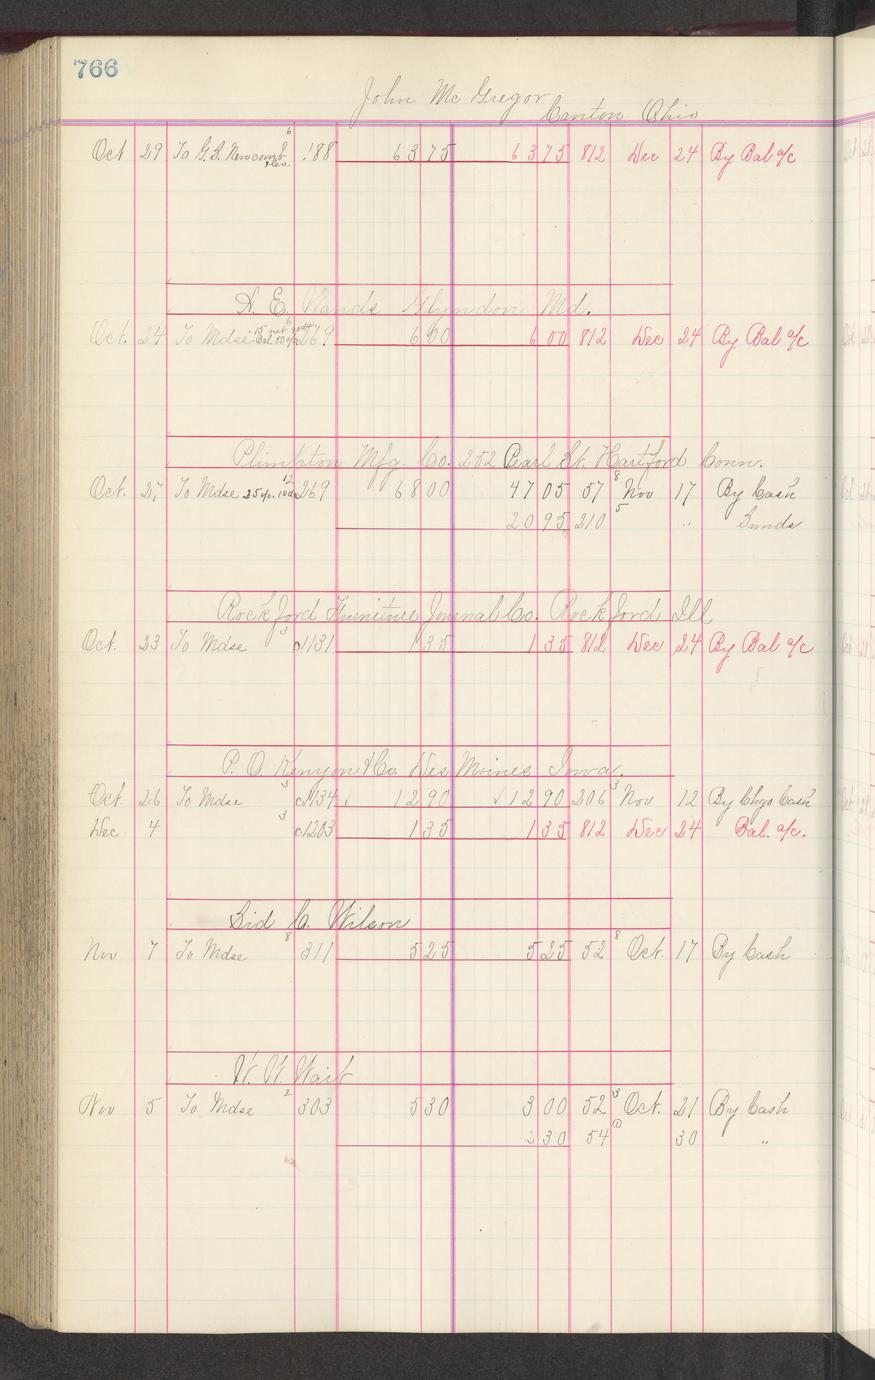 766
John Mc Gregor Canton Ohio
Oct 29 To G.B. Newcomb & 6 188 63 75 63 75 812 Dec 24 By Bal a/c
E. Wands Glyndon Md.
Oct. 24 To Mdse 6 269 6 00 6 00 812 Dec 24 By Bal a/c
Plimpton Mfg. Co. 252 Pearl St. Hartford Conn.
Oct. 27 To Mdse 12 269 68 00 47 05 57 8 Nov 17 By Cash
20 95 210 5 " Sunds
Rockford Furniture Journal Co. Rockford Ill
Oct. 23 To Mdse 3 c1131 1 35 1 35 812 Dec 24 By Bal a/c
P. O. Kenyon & Co. Des Moines Iowa.
Oct. 26 To Mdse 3 c1134 12 90 √ 12 90 206 3 Nov 12 By Chgo Cash
Dec 4 3 c1203 1 35 1 35 812 Dec 24 Bal. a/c.
Sid C. Wilson
Nov 7 To Mdse 8 311 5 25 5 25 52 8 Oct. 17 By Cash
W. W. Wait
Nov 5 To Mdse 2 303 5 30 3 00 52 3 Oct. 21 By Cash
2 30 54 1 30 "